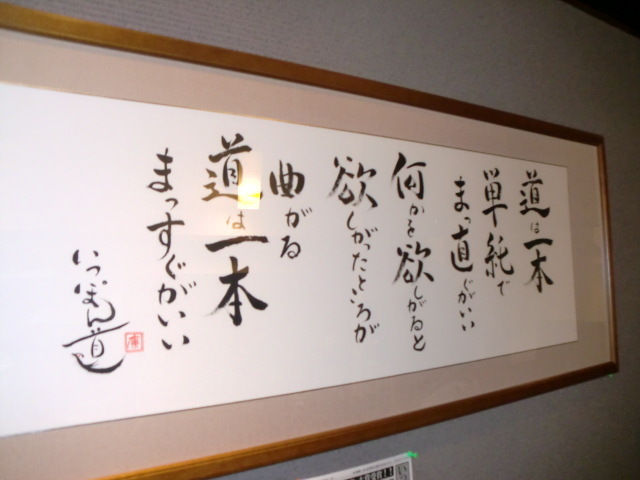 道は一本
単純で
まっ直ぐがいい
何かを欲しがると
欲しがったところが
曲がる
道は一本
まっすぐがいい
いっぽん道